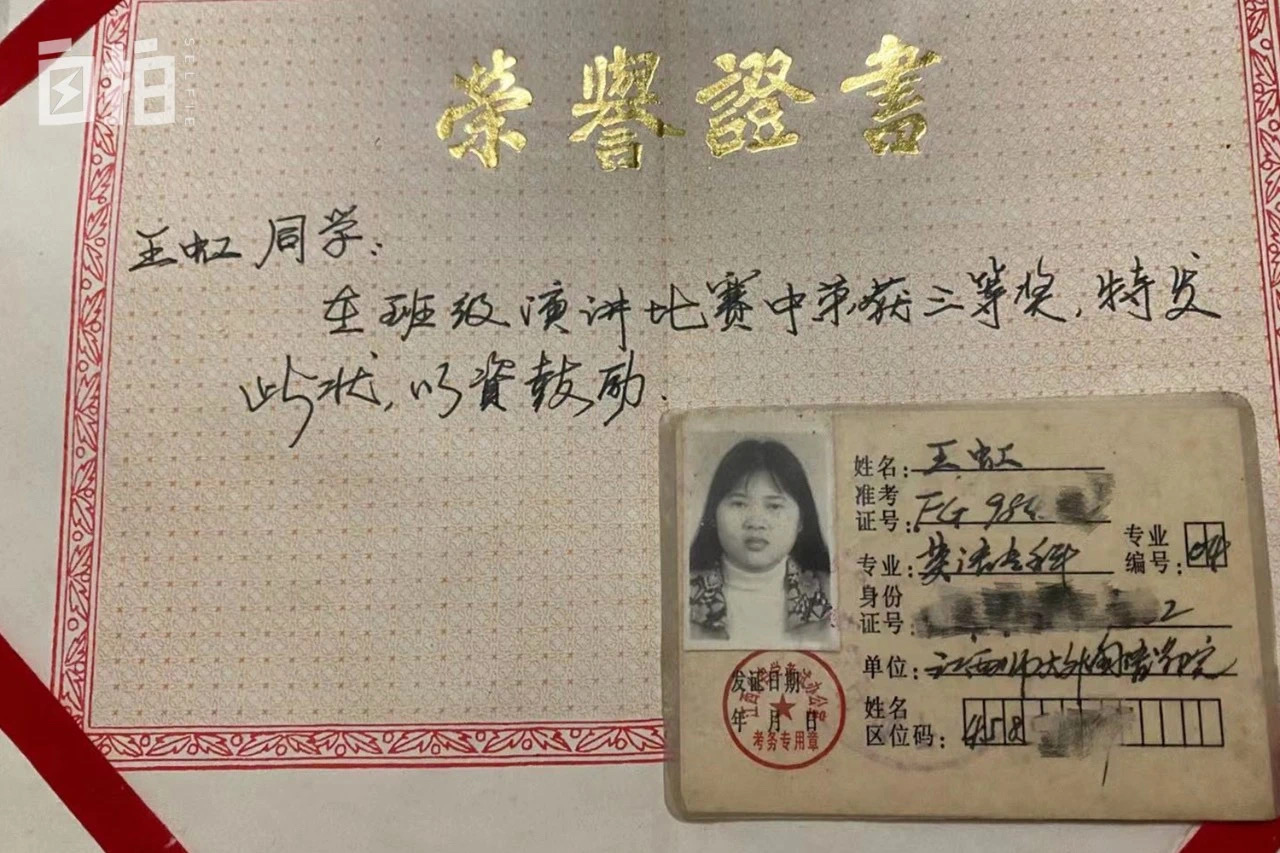 自拍
SELFIE
榮譽證書
王虹同学:
在班级演讲比赛中荣获三等奖,特发
此状,以資鼓励.
姓名:王虹
准考
证号:FG 98
专业:英语专科
专业
编号:04
身份
证号: 2
单位:江西师大外国语学院
姓名
区位码:458
发证日期
年 月 日
考务专用章